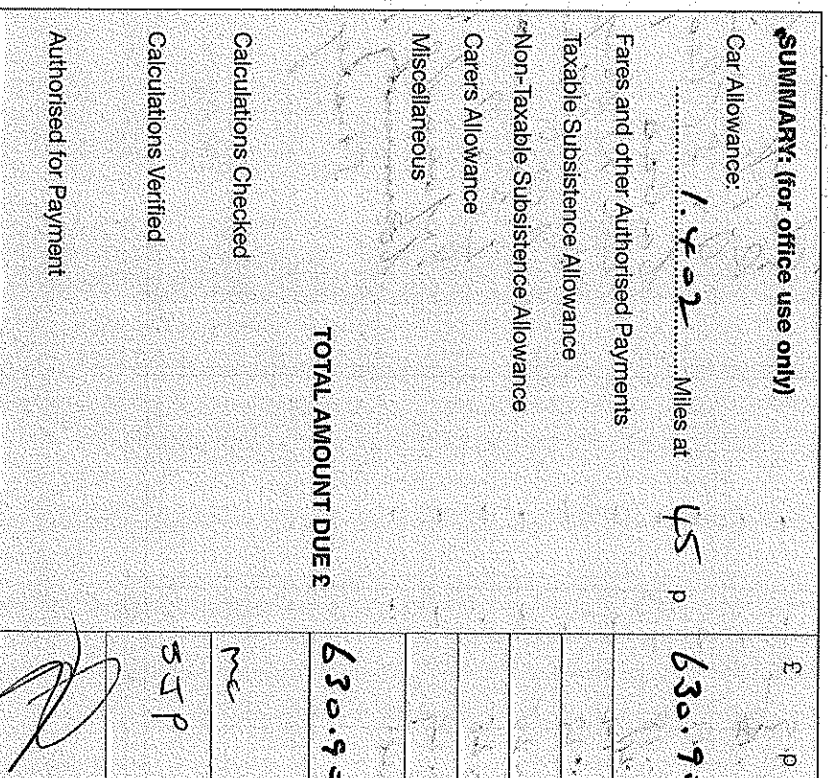 SUMMARY: (for office use only)
£ p
Car Allowance:
1.402 Miles at 45 p 630.9
Fares and other Authorised Payments
Taxable Subsistence Allowance
Non-Taxable Subsistence Allowance
Carers Allowance
Miscellaneous
TOTAL AMOUNT DUE £ 630.9
Calculations Checked mc
Calculations Verified SJP
Authorised for Payment